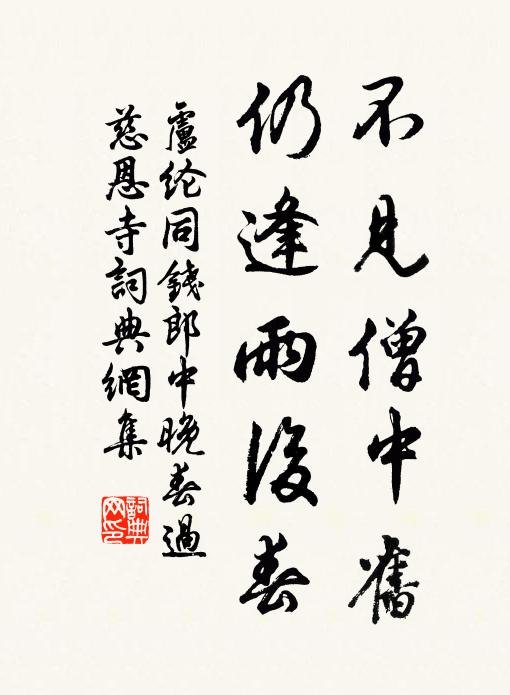 不見僧中舊
仍逢雨後春
盧纶同錢郎中晚春過
慈恩寺詞典網集
詞典網印